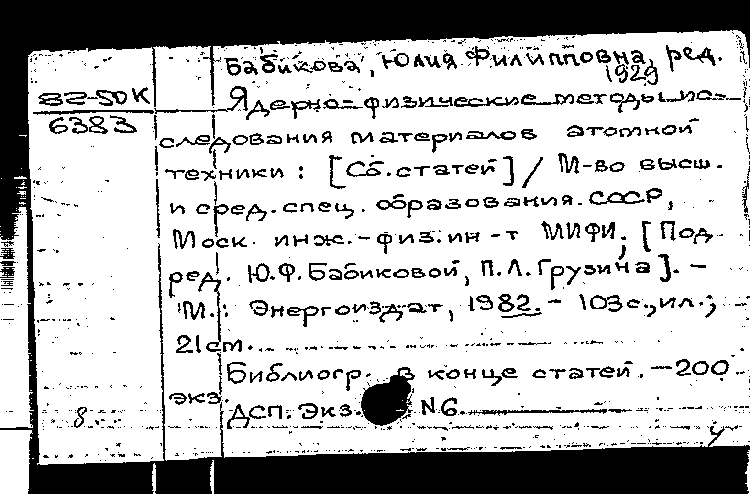 Бабикова, Юлия Филипповна, ред.
1929
82-50К
Ядерно-физические методы ис-
6383
следования материалов атомной
техники: [Сб. статей] / М-во высш.
и сред. спец. образования СССР,
Моск. инж.-физ. ин-т МИФИ; [Под
ред. Ю.Ф. Бабиковой, П.Л. Грузина]. –
М.: Энергоиздат, 1982. – 103 с., ил.;
21 cm.
Библиогр. в конце статей. – 200
экз.
ДСП. Экз. N6.
8